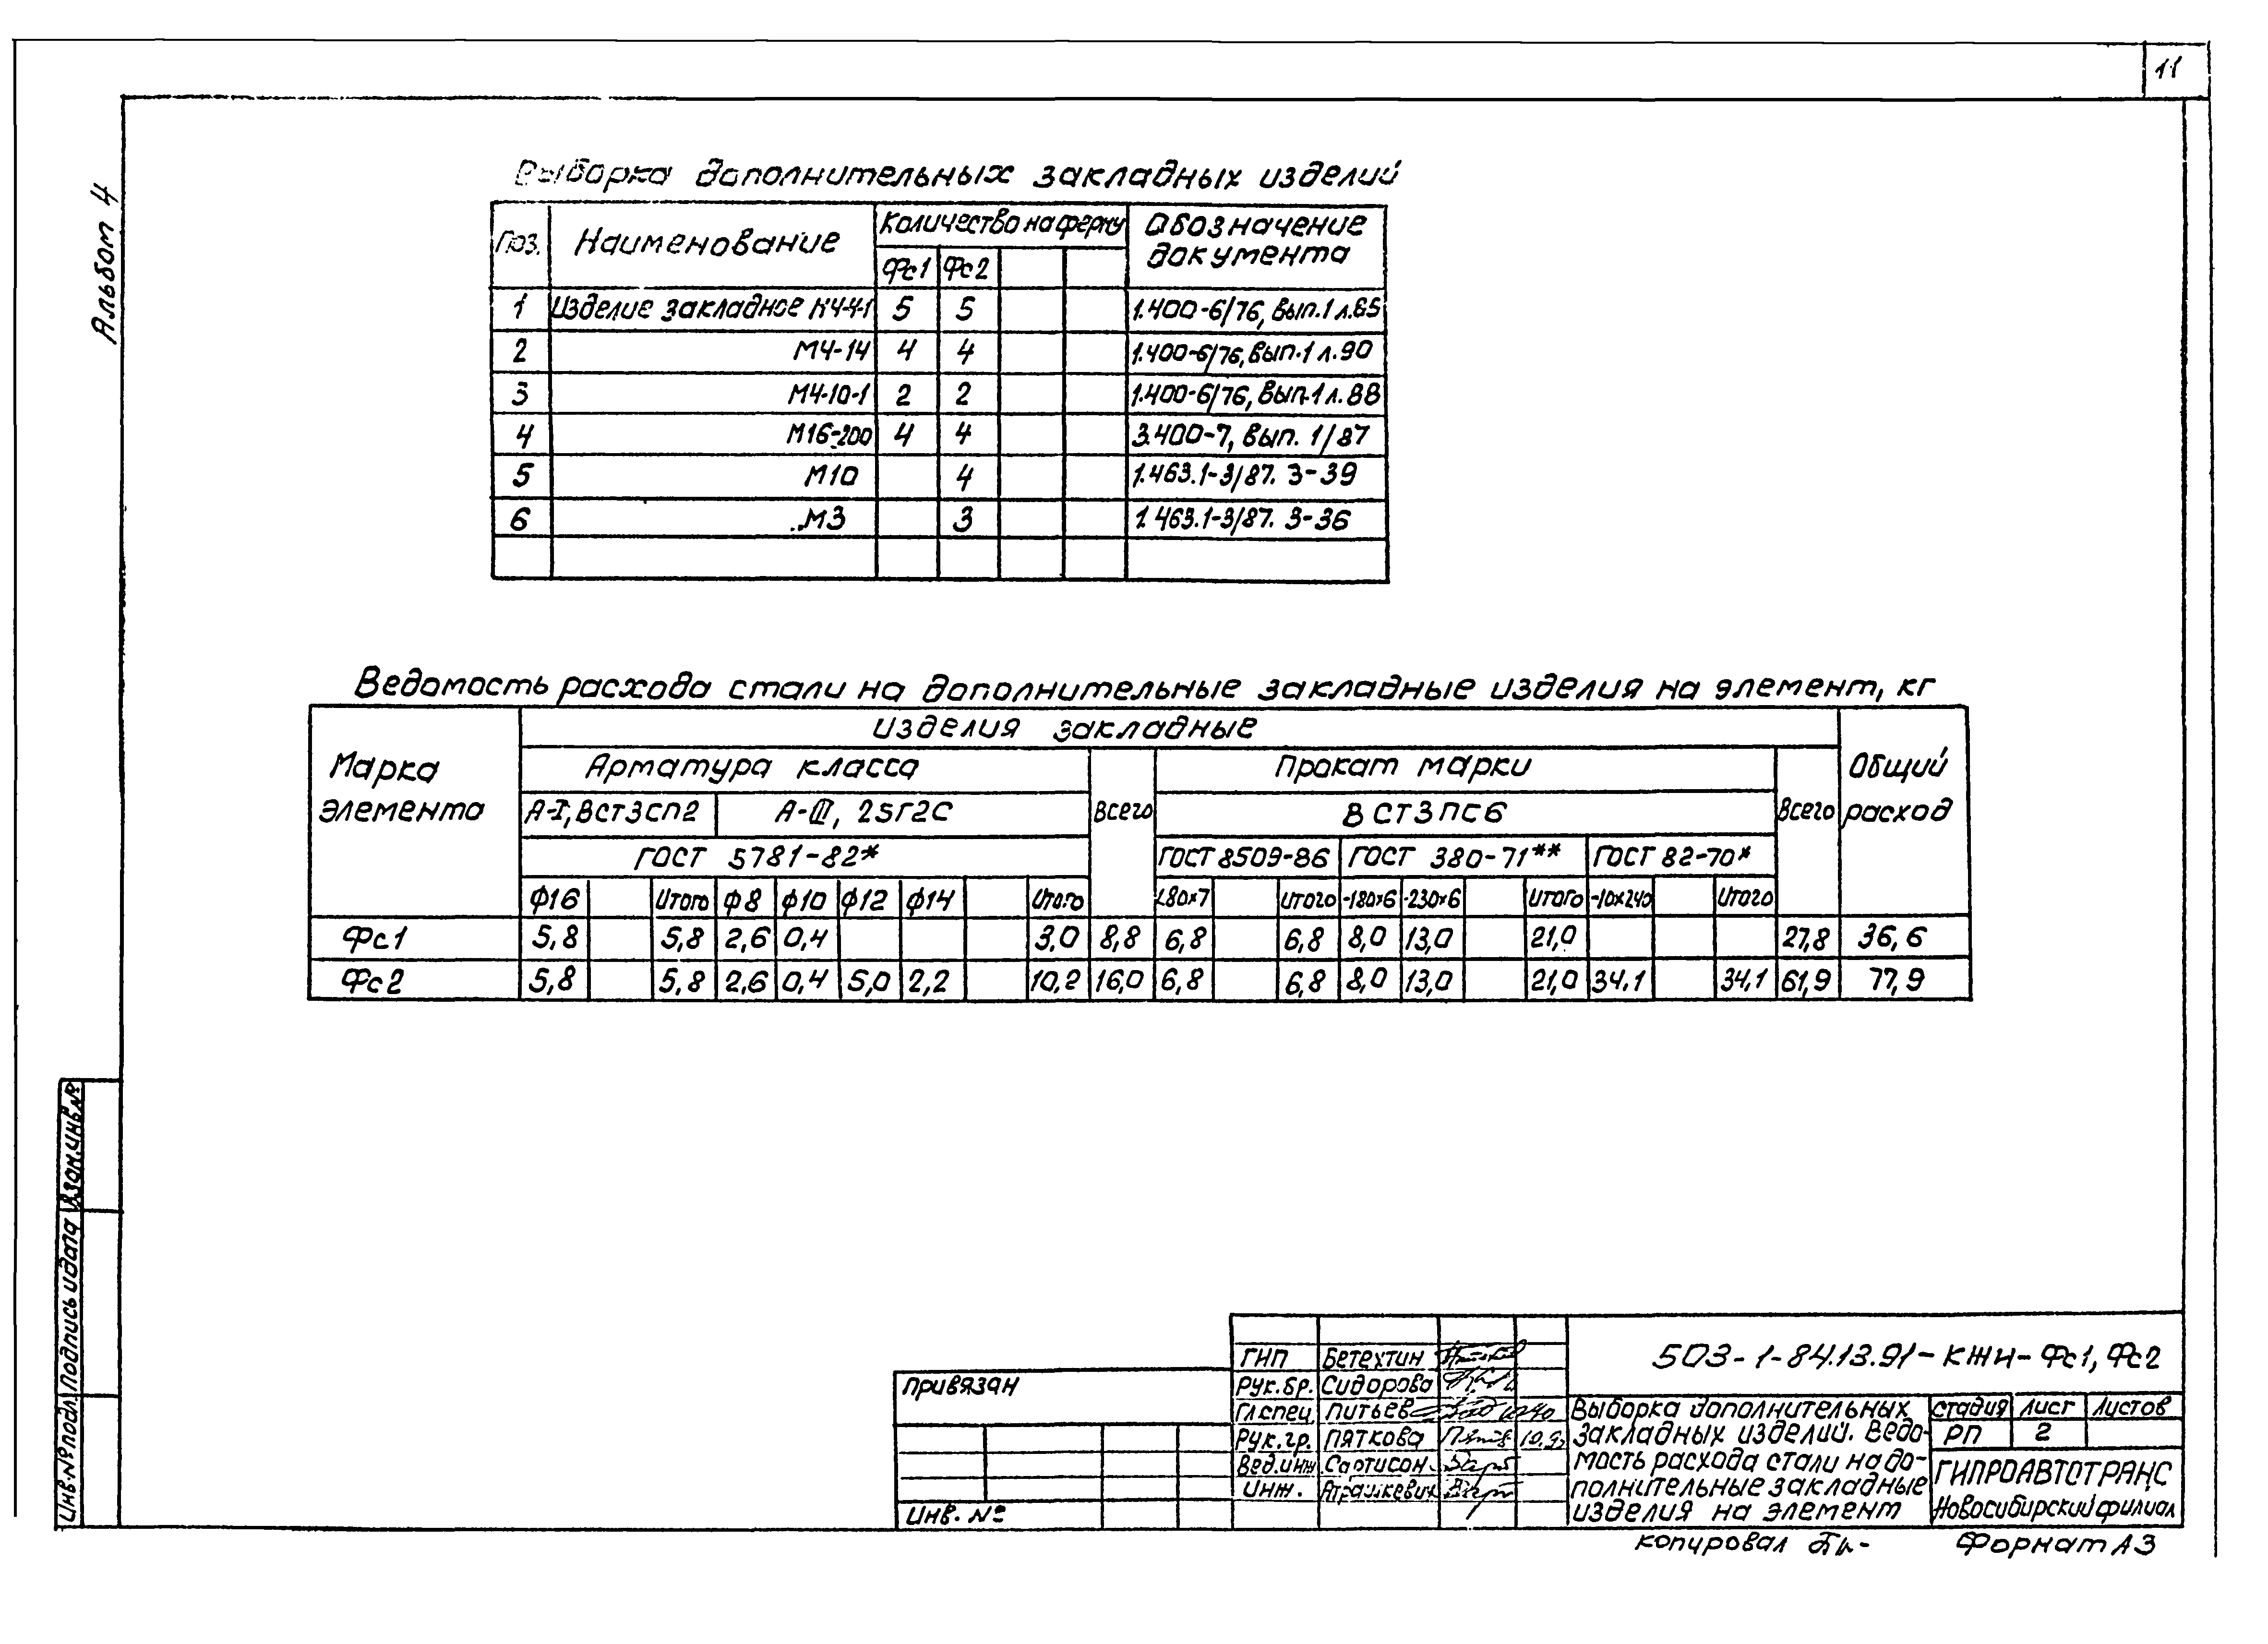 11
Альбом 4
Выборка дополнительных закладных изделий
Поз. Наименование Количество на ферму Обозначение документа
Фс1 Фс2
1 Изделие закладное М4-4-1 5 5 1.400-6/76, вып.1 л.85
2 М4-14 4 4 1.400-6/76, вып.1 л.90
3 М4-10-1 2 2 1.400-6/76, вып.1 л.88
4 М16-200 4 4 3.400-7, вып. 1/87
5 М10 4 1.463.1-3/87. 3-39
6 М3 3 1.463.1-3/87. 3-36
Ведомость расхода стали на дополнительные закладные изделия на элемент, кг
Марка элемента Изделия закладные Общий расход
Арматура класса Всего Прокат марки Всего
А-I, ВСт3сп2 А-III, 25Г2С ВСТ3ПС6
ГОСТ 5781-82* ГОСТ 8509-86 ГОСТ 380-71** ГОСТ 82-70*
Ф16 Итого Ф8 Ф10 Ф12 Ф14 Итого L80×7 Итого -180×6 -230×6 Итого -10×240 Итого
Фс1 5,8 5,8 2,6 0,4 3,0 8,8 6,8 6,8 8,0 13,0 21,0 27,8 36,6
Фс2 5,8 5,8 2,6 0,4 5,0 2,2 10,2 16,0 6,8 6,8 8,0 13,0 21,0 34,1 34,1 61,9 77,9
Взам.инв.№
Подпись и дата
Инв.№ подл.
Привязан
Инв. №
ГИП Бетехтин
Рук.бр. Сидорова
Гл.спец. Питьев
Рук.гр. Пяткова
Вед.инж. Сартисон
Инж. Атрашкевич
503-1-84.13.91-КЖИ-Фс1, Фс2
Выборка дополнительных
закладных изделий. Ведо-
мость расхода стали на до-
полнительные закладные
изделия на элемент
Стадия Лист Листов
РП 2
ГИПРОАВТОТРАНС
Новосибирский филиал
Копировал
Формат А3